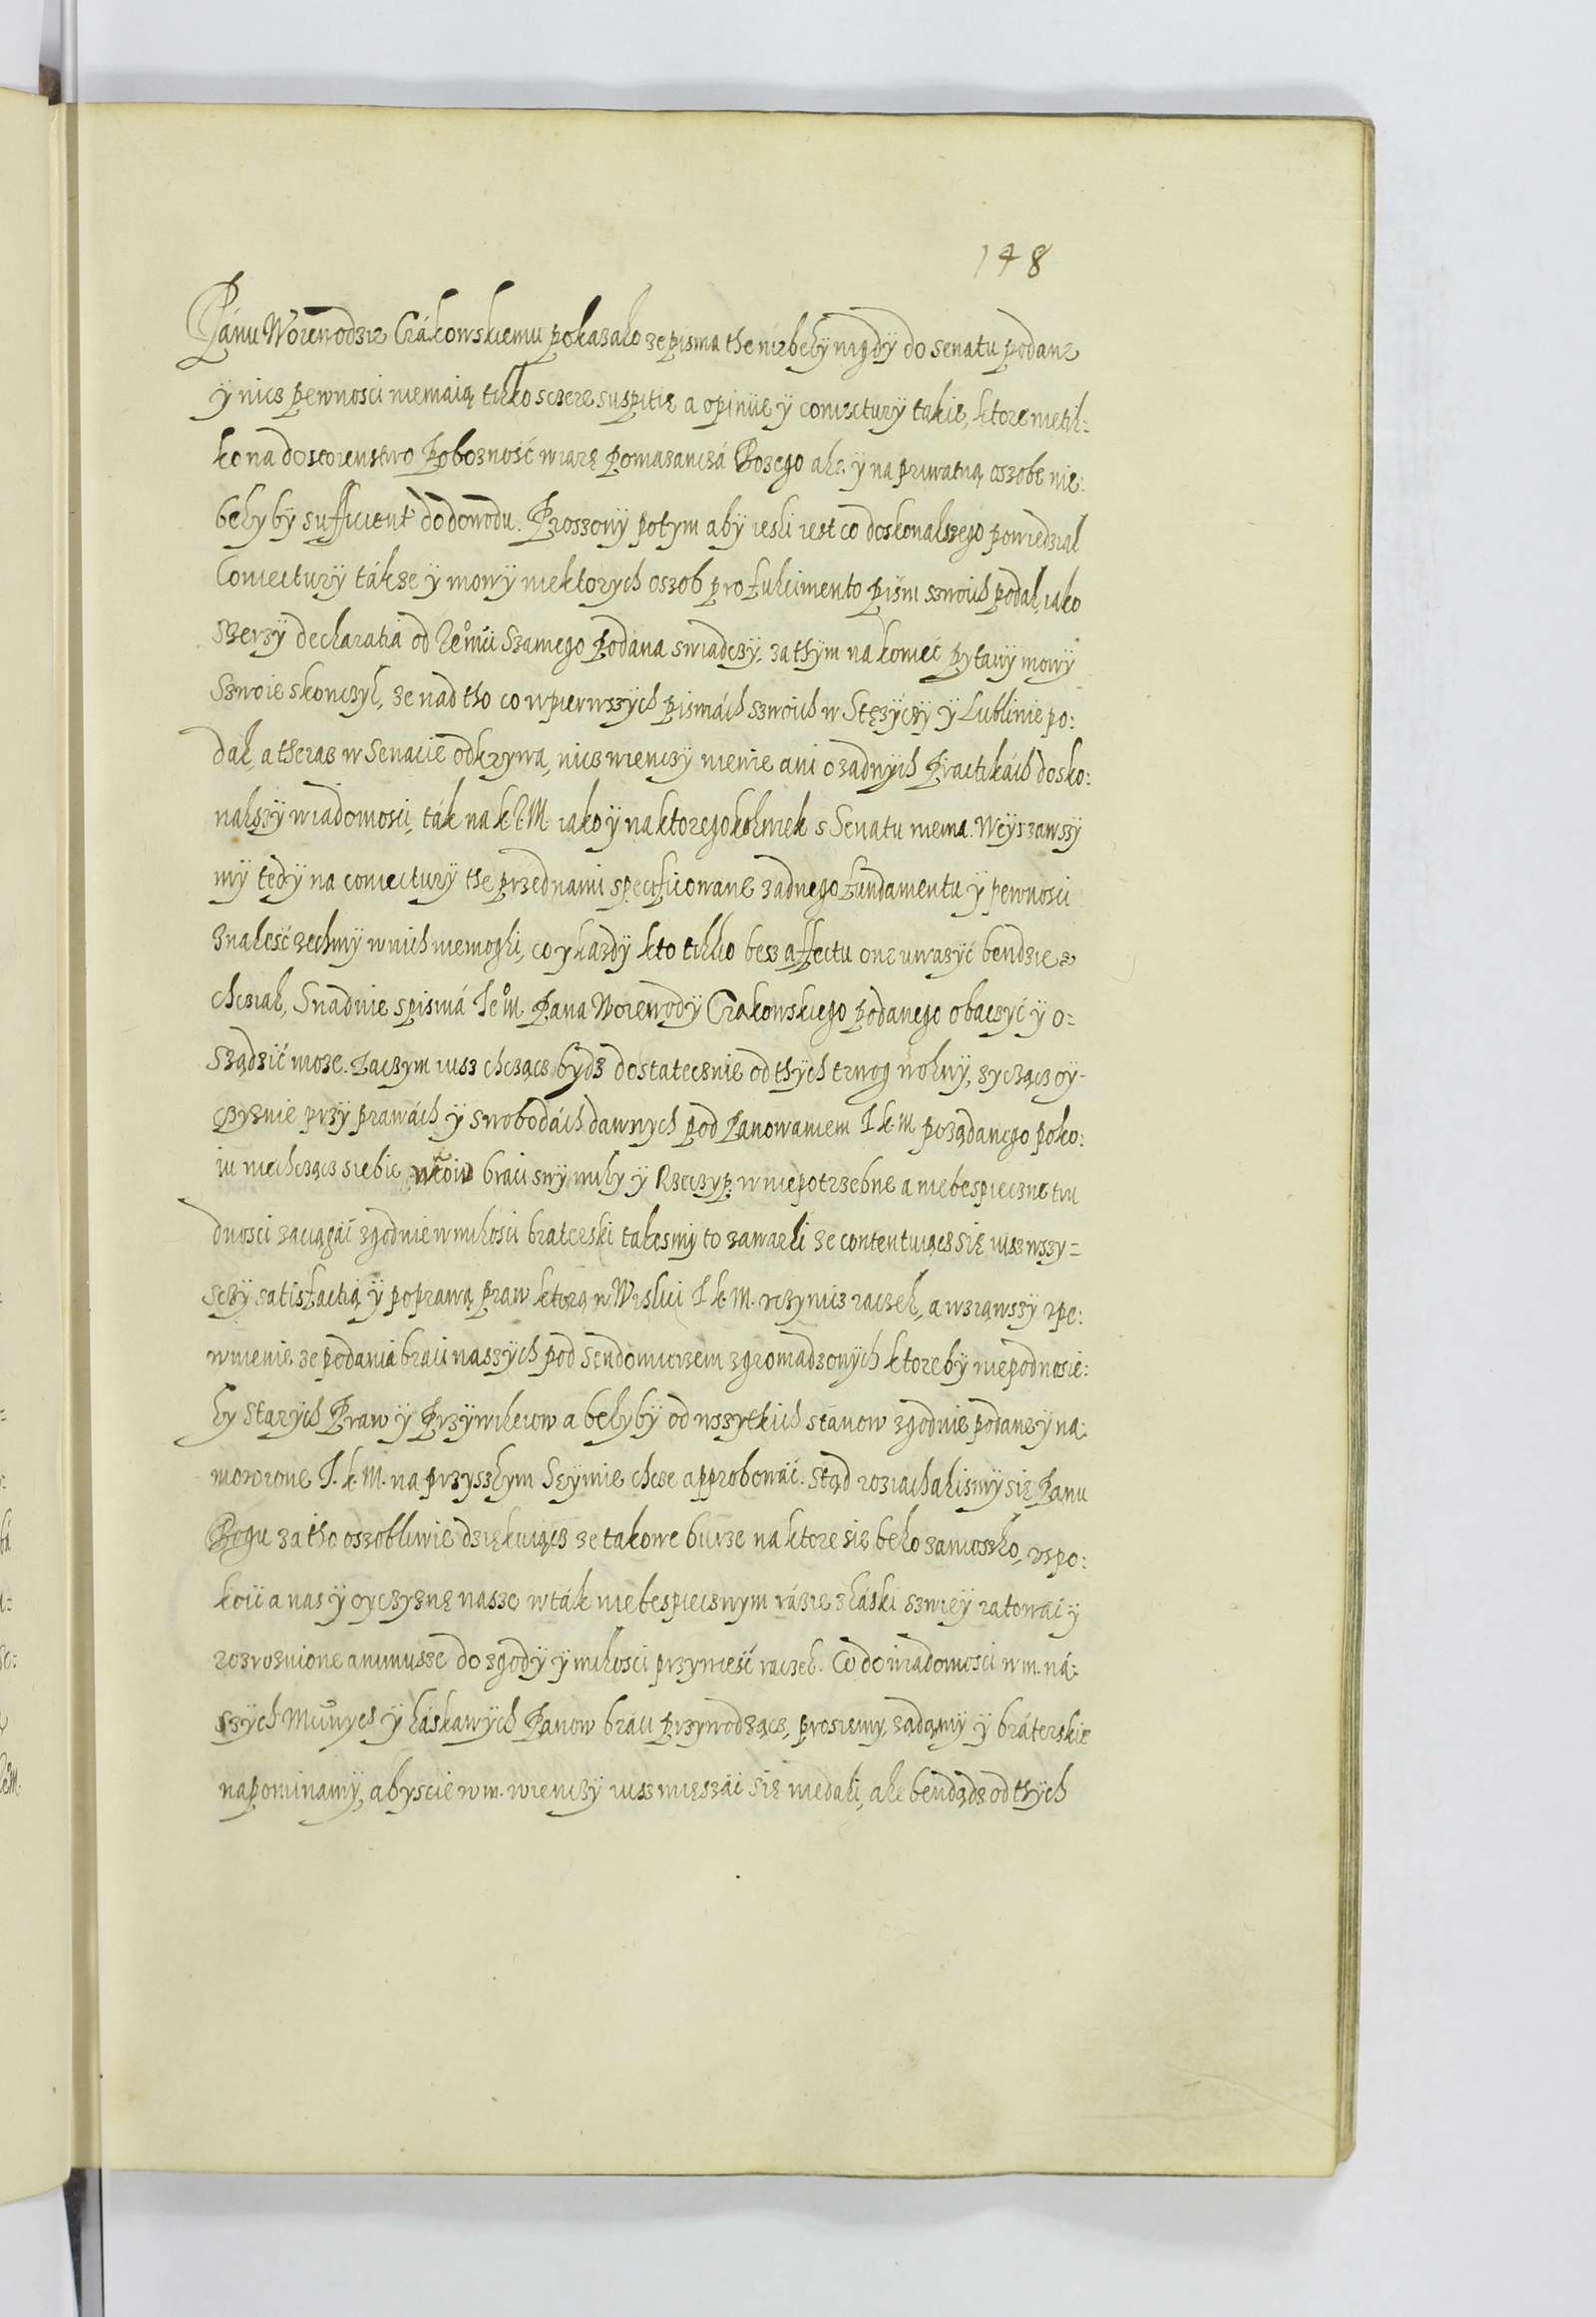 148
Pánu Woiewodzie Crákowskiemu pokazało ze pisma the niebeły nigdÿ do senatu podane
ÿ nicz pewnosci niemaią tilko sczere suspitie a opiniie ÿ coniecturÿ takie, ktore nietil:
ko na dostoienstwo Poboznosć wiarę Pomazancza Bozego ale ÿ na priwatną oszobe nie:
beły bÿ sufficient do dowodu. Proszonÿ potym abÿ iesli iest co doskonalszego powiedział
Coniecturÿ tákze ÿ mowÿ niektorych oszob pro fulcimento pism szwoich podał, iako
szerzÿ declaratia od Jemu Szamego Podana swiadczÿ, za thÿm na koniec pytanÿ mowÿ
Szwoie skonczył, ze nad tho co w pierwszÿch pismách szwoich w Stęzÿczÿ ÿ Lublinie po:
dał, a theraz w Senacie odkrywa, nicz wienczÿ niewie ani o zadnÿch Practikách dosko:
nalszÿ wiadomosci, ták na k. I. M. iako ÿ na ktoregokolwiek s Senatu niema. Weÿszawszÿ
mÿ tedÿ na coniecturÿ the przed nami specificowane zadnego fundamentu ÿ pewnosci
Znalesć zechmÿ w nich niemogli, co y kazdÿ kto tilko bez affectu one uwazÿć bendzie
chcział, Snadnie s pisma Je M. Pana Woiewodÿ Crakowskiego podanego obaczyć ÿ o=
Sządzić moze. Zaczym iusz chcącz bydz dostatecznie od thÿch trwog wolnÿ, zyczącz oÿ-
czyznie przÿ prawách ÿ swobodách dawnych pod Panowaniem I. k. M pozadanego poko:
iu niechcącz siebie braci swÿ miły ÿ Rzeczyp: w niepotrzebne a niebespieczne tru
dnosci zaciągać zgodnie w miłosci braterski takesmÿ to zawarli ze contentuiącz się iusz wszy=
sczÿ satisfactią ÿ poprawą Praw ktorą w Wislici I. k. M. uczynicz raczeł, a wziąwszÿ upe:
wnienie ze podania braci naszÿch pod Sendomierzem zgromadzonÿch ktore bÿ niepodnosie:
ły Starÿch Praw ÿ Przÿwileiow a beły bÿ od wszytkich stanow zgodnie podane ÿ na:
mowione I. k. M. na przyszłym Seÿmie chce approbować. Stąd roziachalismÿ się Panu
Bogu za tho oszobliwie dziękuiącz ze takowe burze na ktore sie beło zanioszło, uspo:
koić a nas ÿ oyczyznę nasze w ták niebespiecznym rázie z łáski szwey ratować ÿ
rozroznione animusze do zgodÿ ÿ miłosci przyniesć raczeł. Co do wiadomosci w m. ná:
szÿch Mciwych ÿ łáskawÿch Panow braci Przywodzącz, prosiemy, ządamÿ ÿ bráterskie
napominamÿ, abyscie w m. wienczÿ iusz mięszáć się niedali, ale bendądz od thÿch